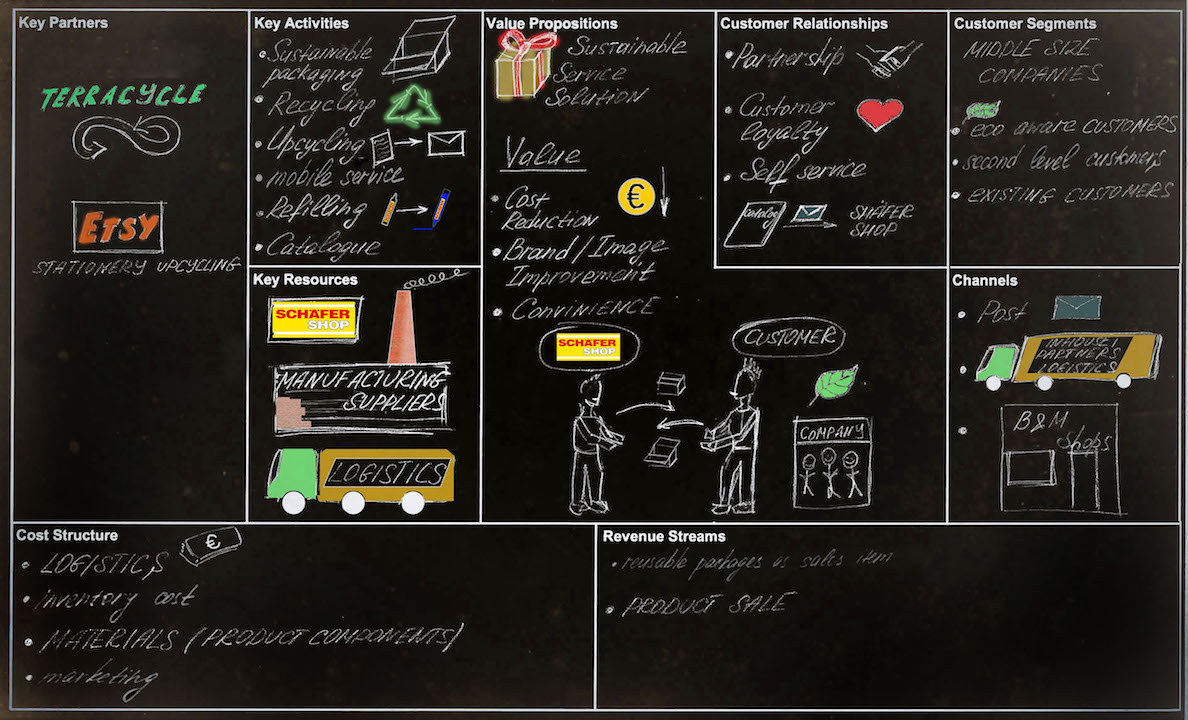 Key Partners
TERRACYCLE
ETSY
STATIONERY UPCYCLING
Key Activities
• Sustainable
packaging
• Recycling
• Upcycling
• mobile service
• Refilling
• Catalogue
Key Resources
SCHÄFER
SHOP
MANUFACTURING
SUPPLIERS
LOGISTICS
Value Propositions
Sustainable
Service
Solution
Value
• Cost
Reduction
€
• Brand/Image
Improvement
• CONVINIENCE
SCHÄFER
SHOP
CUSTOMER
COMPANY
Customer Relationships
• Partnership
• Customer
loyalty
• Self service
catalog
SHÄFER
SHOP
Customer Segments
MIDDLE SIZE
COMPANIES
• eco aware CUSTOMERS
• second level customers
• EXISTING CUSTOMERS
Channels
• Post
• INHOUSE/
PARTNERS
LOGISTICS
• B&M
Shops
Cost Structure
€
• LOGISTICS
• inventory cost
• MATERIALS (PRODUCT COMPONENTS)
• marketing
Revenue Streams
• reusable packages as sales item
• PRODUCT SALE